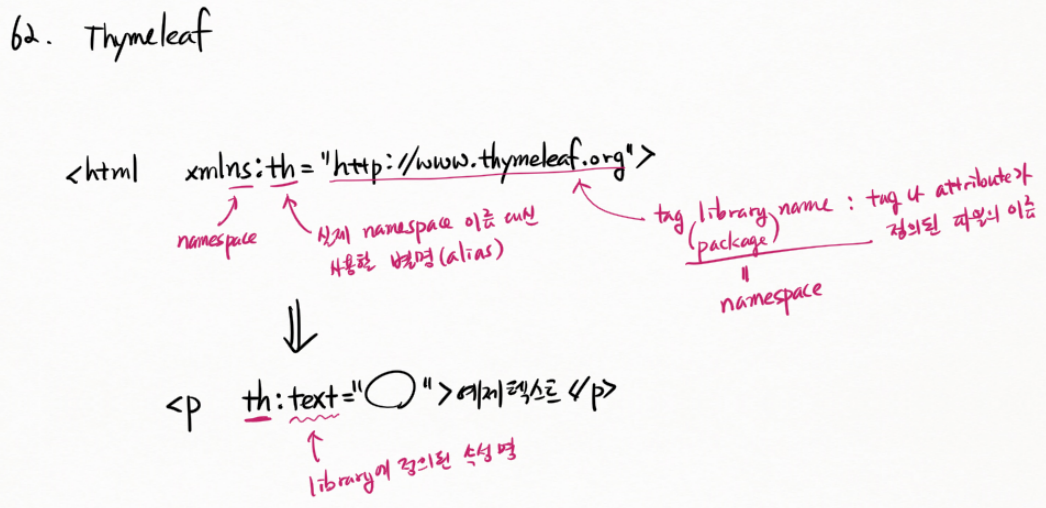 62. Thymeleaf
<html xmlns:th="http://www.thymeleaf.org">
namespace
실제 namespace 이름 대신
사용할 별명(alias)
tag library name : tag 나 attribute가
(package) 정의된 파일의 이름
"
namespace
⇓
<p th:text="◯">예제텍스트</p>
library에 정의된 속성명